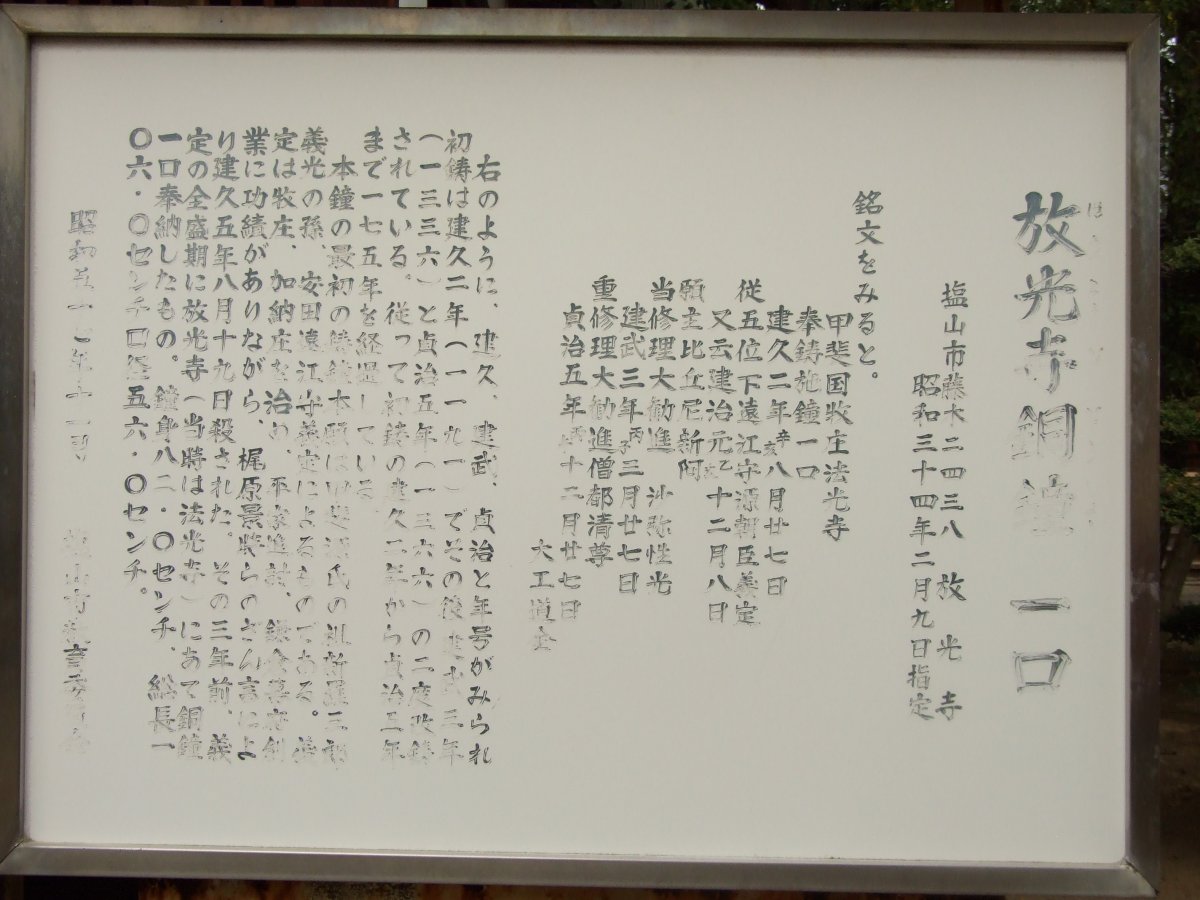 放光寺銅鐘 一口
塩山市藤木二四三八 放光寺
昭和三十四年二月九日指定
銘文をみると。
甲斐国牧庄法光寺
奉鋳施鐘一口
建久二年辛亥八月廿七日
従五位下遠江守源朝臣義定
又云建治元乙亥十二月八日
願主比丘尼新阿
当修理大勧進 沙弥性光
建武三年丙子三月廿七日
重修理大勧進僧都清尊
貞治五年丙午十二月廿七日
大工道全
右のように、建久、建武、貞治と年号がみられ
初鋳は建久二年(一一九一)でその後建武三年
(一三三六)と貞治五年(一三六六)の二度改鋳
されている。従って初鋳の建久二年から貞治五年
まで一七五年を経過している
本鐘の最初の鋳 本願は 源氏の祖新羅三郎
義光の孫、安田遠江守義定によるものである。義
定は牧庄、加納庄を治め、平家追討、鎌倉幕府創
業に功績がありながら、梶原景時らのざん言によ
り建久五年八月十九日殺された。その三年前、義
定の全盛期に放光寺(当時は法光寺)にあて銅鐘
一口奉納したもの。鐘身八二・〇センチ、総長一
〇六・〇センチ口径五六・〇センチ。
昭和五 年十一月 塩山市教育委員会